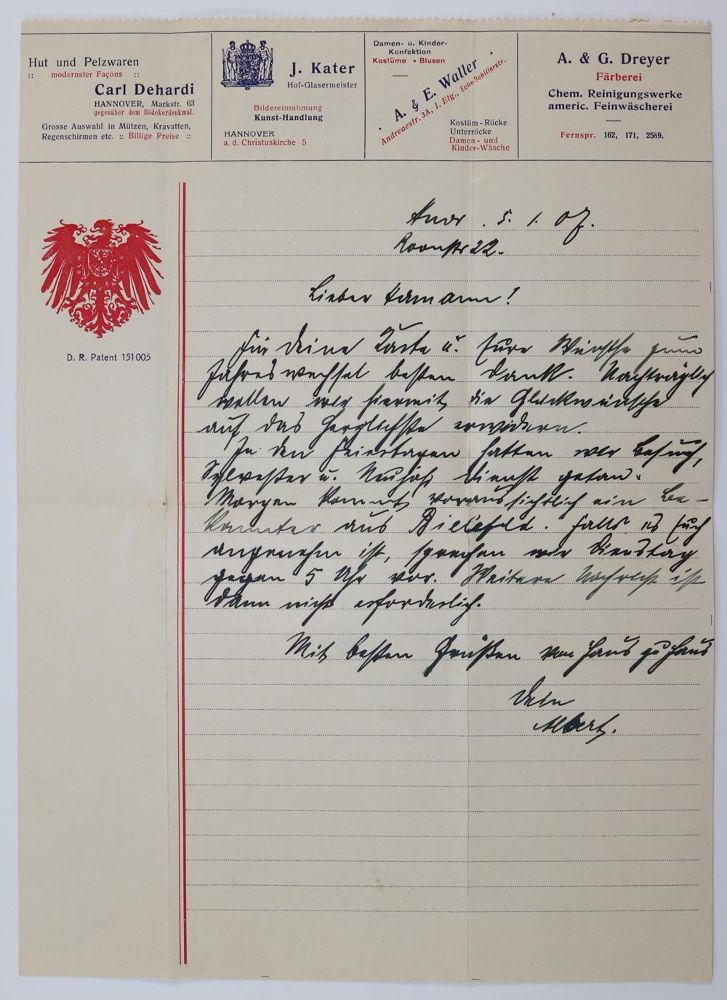 Hut und Pelzwaren
:: modernster Façons ::
Carl Dehardi
HANNOVER, Markstr. 63
gegenüber dem Bödekerdenkmal.
Grosse Auswahl in Mützen, Kravatten,
Regenschirmen etc. :: Billige Preise ::
J. Kater
Hof-Glasermeister
Bildereinrahmung
Kunst-Handlung
HANNOVER
a. d. Christuskirche 5
Damen- u. Kinder-
Konfektion
Kostüme • Blusen
• A. & E. Waller •
Andreaestr. 3A, I. Etg., Ecke Schillerstr.
Kostüm-Röcke
Unterröcke
Damen- und
Kinder-Wäsche
A. & G. Dreyer
Färberei
Chem. Reinigungswerke
americ. Feinwäscherei
Fernspr. 162, 171, 2589.
D. R. Patent 151005
5. 1. 07.
Roonstr 22.
Lieber
Für Deine Karte u. Eure Wünsche zum
Jahreswechsel besten Dank. Nachträglich
wollen wir hiermit die Glückwünsche
auf das herzlichste erwidern.
In den Feiertagen hatten wir Besuch,
Sylvester u. Neujahr Dienst getan.
Morgen kommt voraussichtlich ein Be-
kannter aus Bielefeld. Falls es Euch
angenehm ist, sprechen wir Dienstag
gegen 5 Uhr vor. Weitere Nachricht ist
dann nicht erforderlich.
Mit besten Grüßen von Haus zu Haus
Dein
Albert.